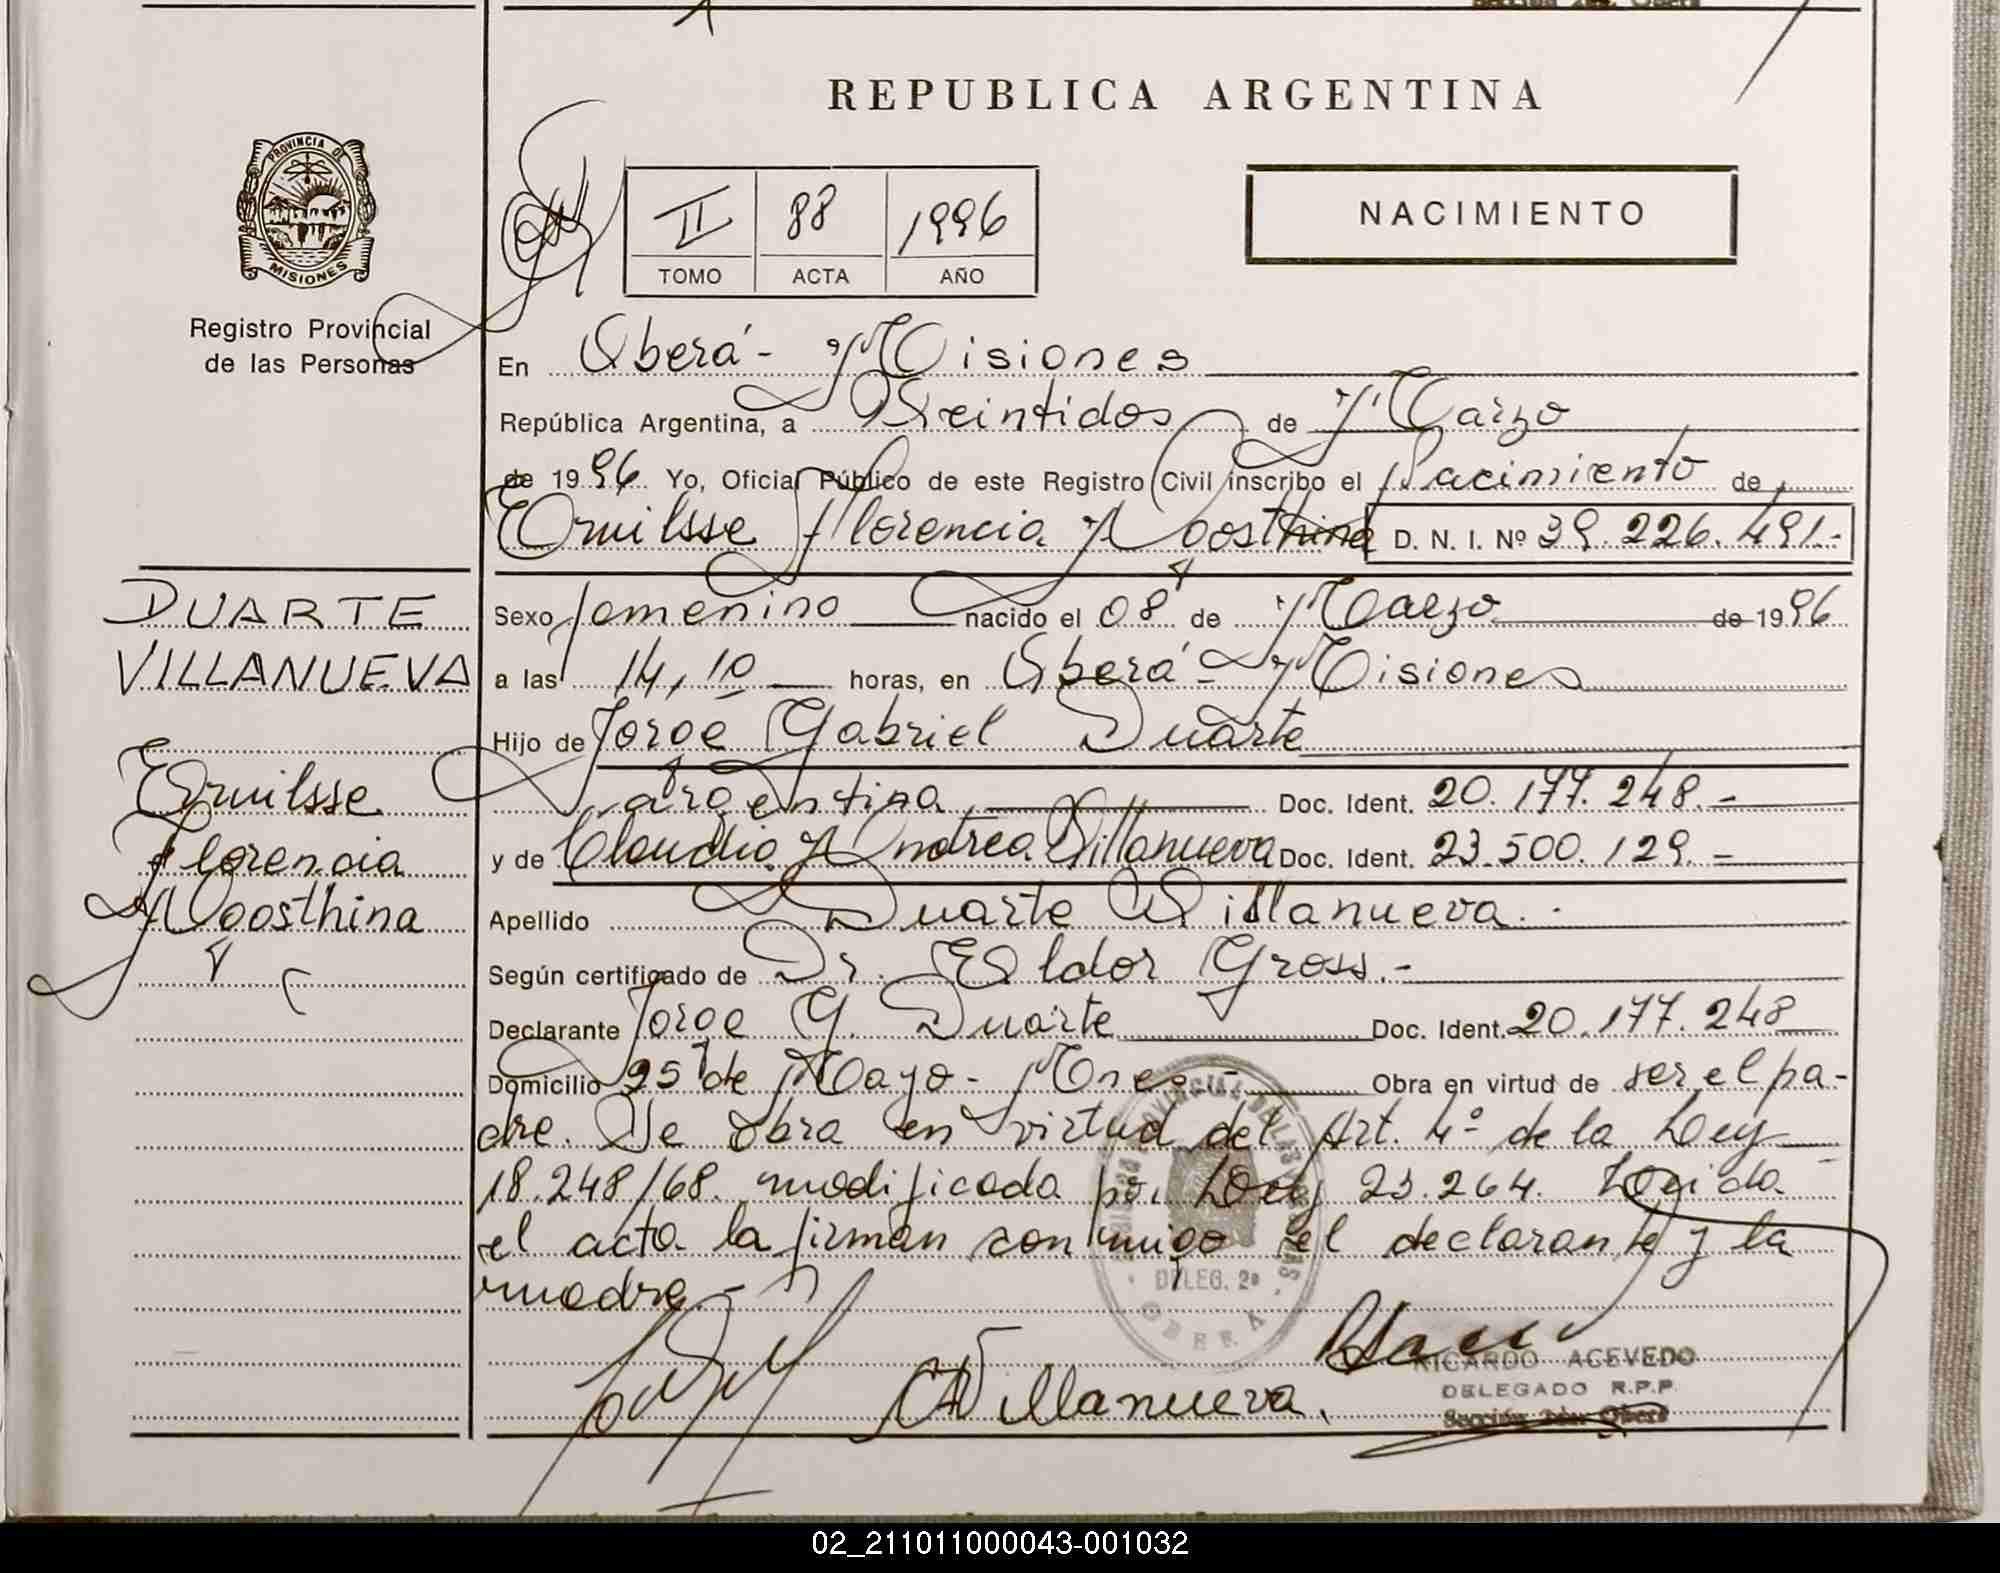 REPUBLICA ARGENTINA
PROVINCIA DE
MISIONES
Registro Provincial
de las Personas
II 88 1996
TOMO ACTA AÑO
NACIMIENTO
En Oberá - Misiones
República Argentina, a Veintidos de Marzo
de 1996 Yo, Oficial Público de este Registro Civil inscribo el Nacimiento de
Ermilsse Florencia Aoosthina D. N. I. Nº 39.226.491.-
DUARTE
VILLANUEVA
Ermilsse
Florencia
Aoosthina
Sexo femenino nacido el 08 de Marzo de 1996
a las 14,10 horas, en Oberá - Misiones
Hijo de Jorge Gabriel Duarte
argentina Doc. Ident. 20.177.248.-
y de Claudia Andrea Villanueva Doc. Ident. 23.500.129.-
Apellido Duarte Villanueva.-
Según certificado de Dr. Eldor Gross.-
Declarante Jorge G. Duarte Doc. Ident. 20.177.248
Domicilio 25 de Mayo - Mnes - Obra en virtud de ser el pa-
dre. Se obra en virtud del Art. 4º de la Ley
18.248/68. modificada por Ley 23.264. Leida
el acta la firman conmigo el declarante y la
madre.-
DELEG. 2ª
OBERA
Villanueva.
RICARDO ACEVEDO
DELEGADO R.P.P.
Sección 2da. Oberá
02_211011000043-001032